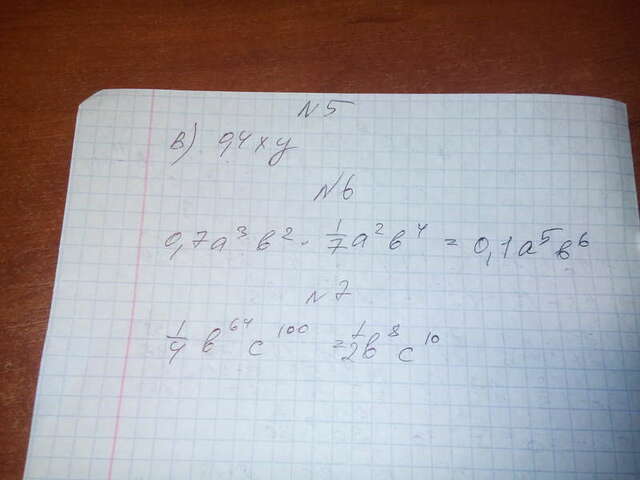 N5
в) 0,4xy
N6
0,7a³b² · 1/7 a²b⁴ = 0,1a⁵b⁶
N7
1/4 b⁶⁴c¹⁰⁰ = 1/2 b⁸c¹⁰